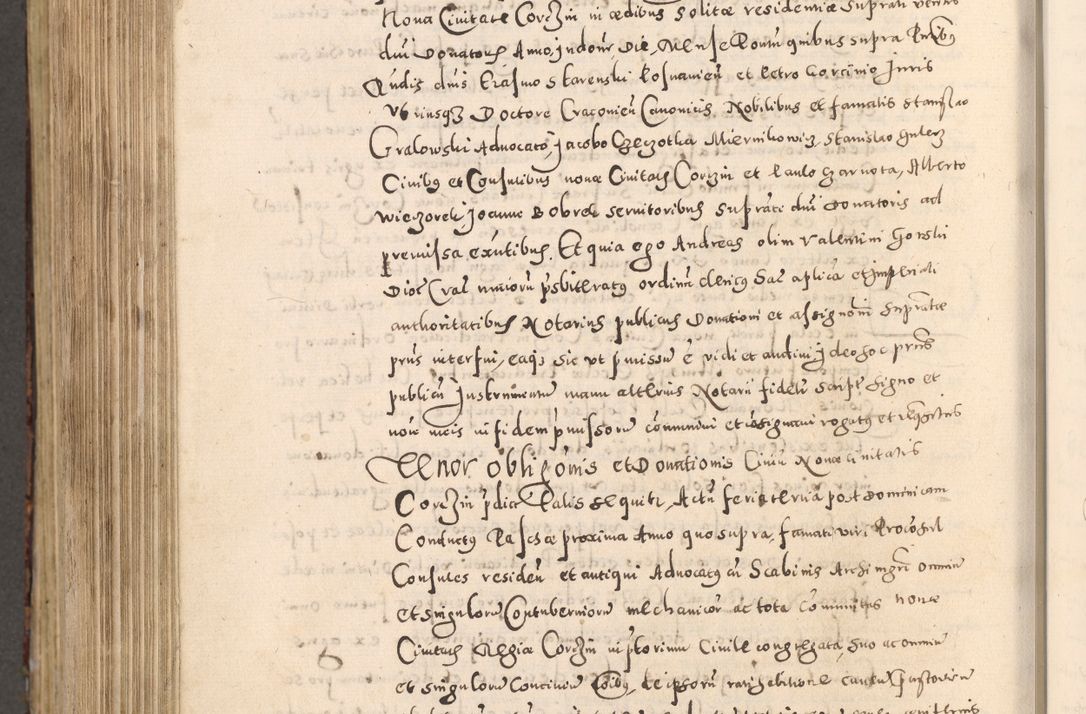 Noua Ciuitate Corczin in ædibus solitæ residentiæ suprati
dni Donatoris Anno, indone, Die, Mense quibus supra Pntibus
Dnis Erasmo Skarenski Posnanien et Petro Gorcinio Juris
Vtriusqz Doctore Cracouien Canonicis, Nobilibus et famatis Stanislao
Gralowski Aduocato, Jacobo Czeczotka Miernikowicz, Stanislao
Ciuibus et Consulibus nouæ Ciuitatis Corczin et Paulo Czarnota, Alberto
Wieczorek Joanne Bobrek seruitoribus suprati dni Donatoris ad
premissa existentibus. Et quia ego Andreas olim Valentini Gorski
Dioc Crac minorum psbiteratus ordinum clericus Sac aplica et imperiali
authoritatibus Notarius publicus Donationi et assignoni supratæ
pns interfui, eaqz sic vt pmissum e vidi et audiui ideo hoc pns
publicu Instrumentum manu alterius Notarii fideli script signo et
noie meis in fidem pmissorum communiui et consignaui rogatus et requisitus
Tenor obligonis et Donationis Ciuiu Nouæ Ciuitatis
Corczin pdicte Talis sequitur, Actu feria tertia post Dominicam
Conductus Paschæ proxima Anno quo supra, famati viri Procosul
Consules residen et antiqui Aduocatus cu Scabinis Archi mgri omnium
et singulorum Contuberniorum mechanicor ac tota Communitas nouæ
Ciuitatis Regiæ Corczin in ptorium Ciuile congregata, suo ac omnium
et singulorum Conciuium noibus, de ipsorum ratihabitione